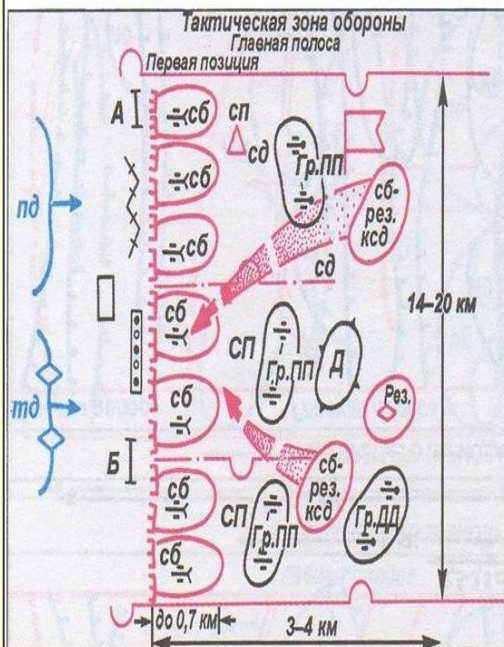 Тактическая зона обороны
Главная полоса
Первая позиция
А
сб
сп
сд
Гр.ПП
сб
пд
сб-
рез.
ксд
сб
сд
14–20 км
сб
СП
Гр.ПП
Д
тд
сб
Рез.
Б
сб-
рез.
ксд
сб
СП
Гр.ПП
Гр.ДД
сб
до 0,7 км
3–4 км